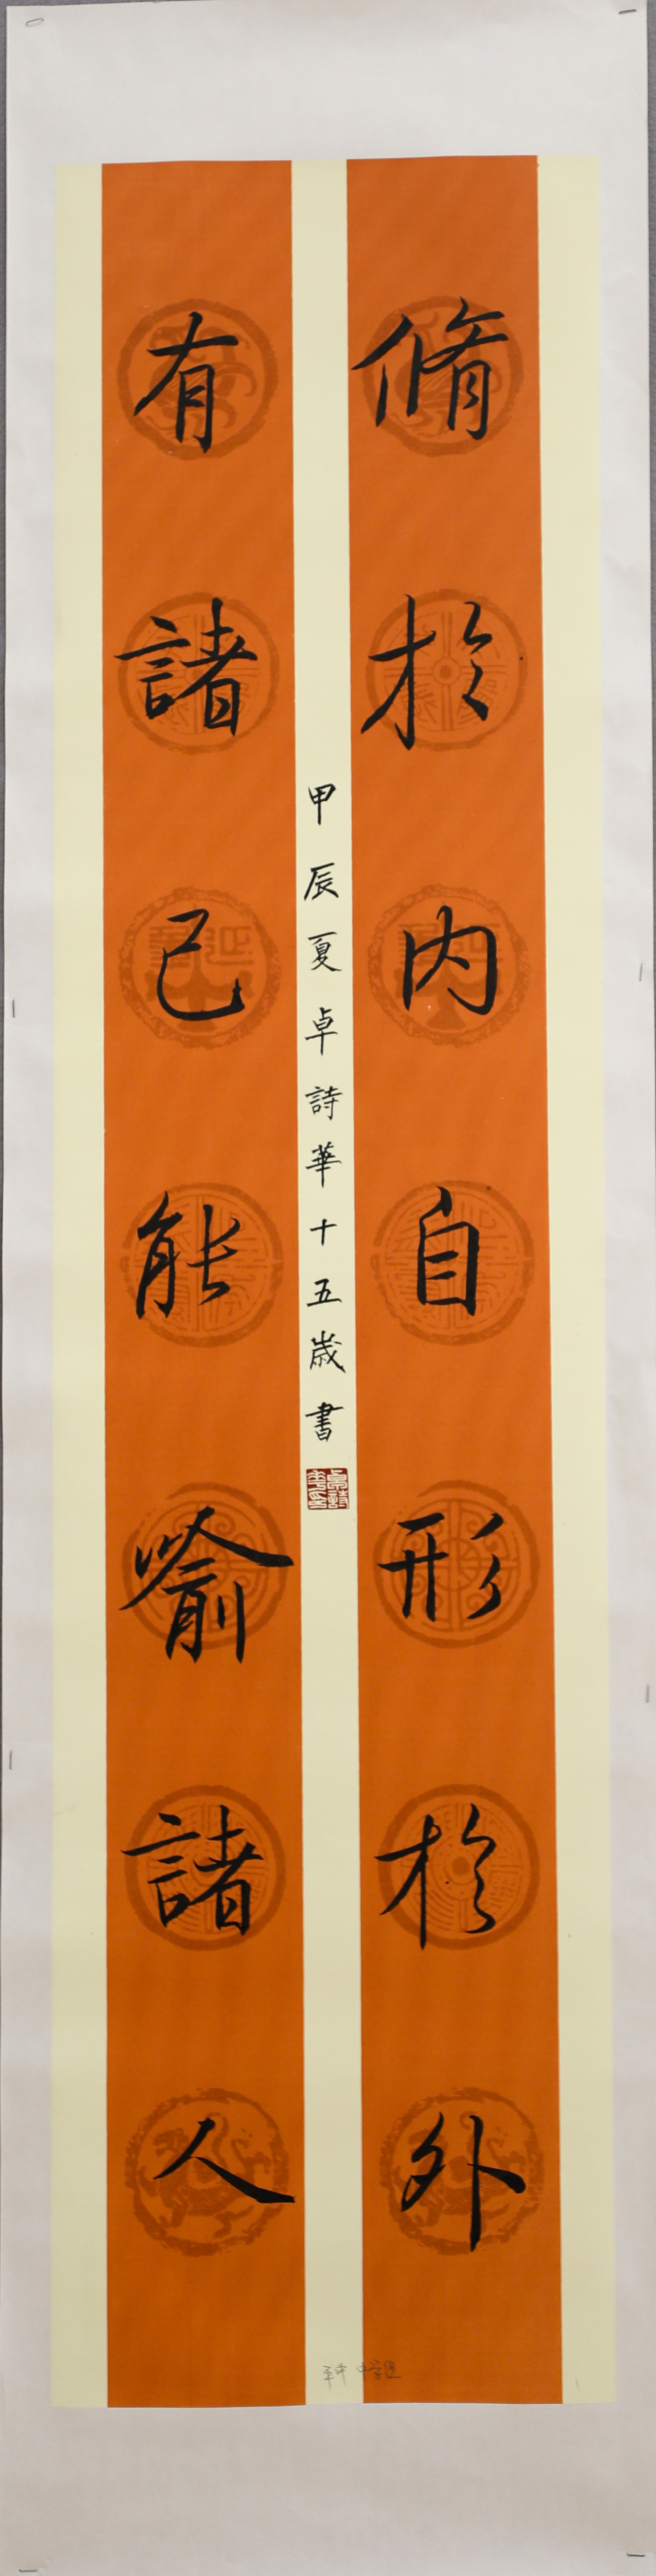 脩於內自形於外
有諸己能喻諸人
甲辰夏卓詩華十五歲書